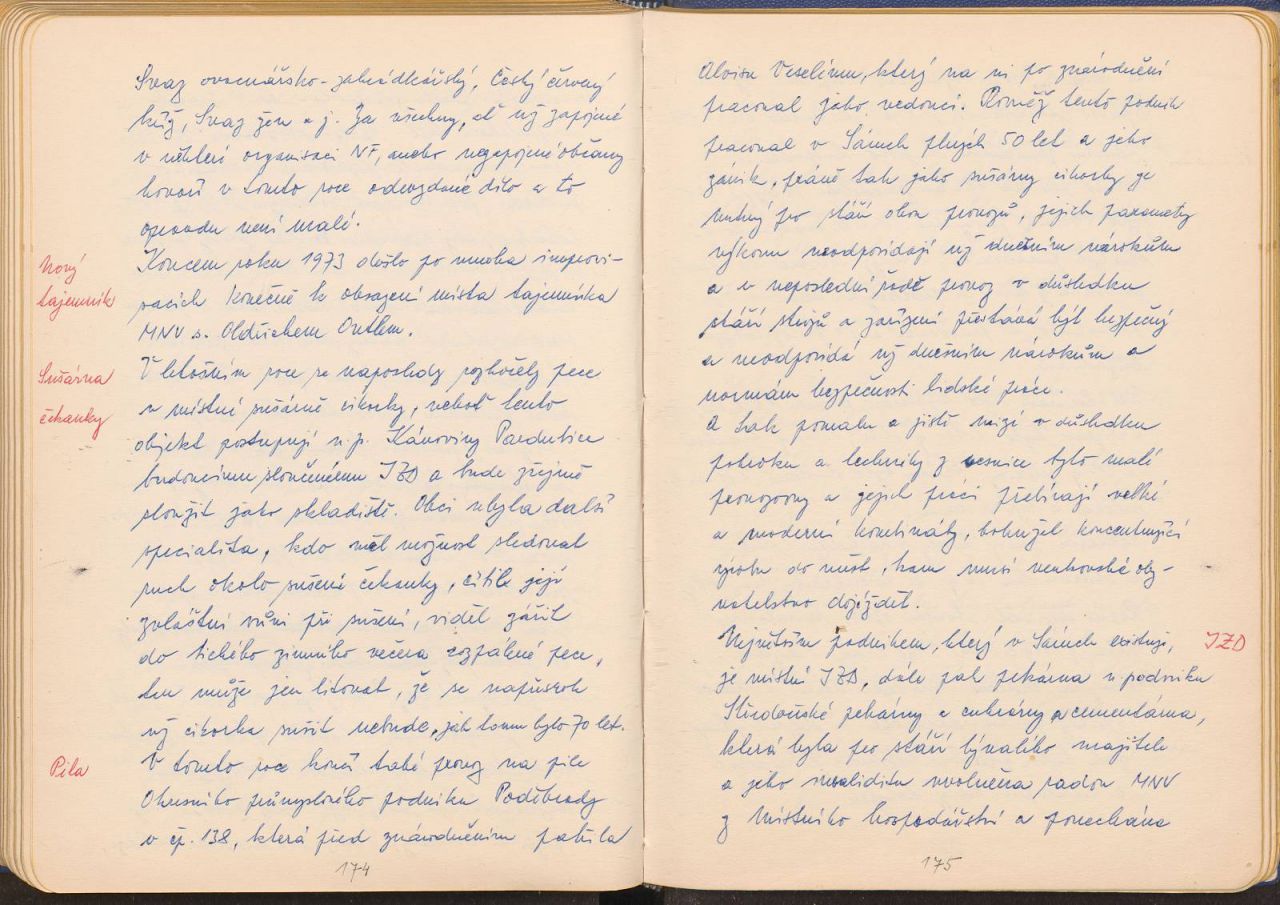 Svaz ovocnářsko-zahrádkářský, Český červený
kříž, Svaz žen a j. Za všechny, ať už zapojené
v některé organisaci NF, anebo nezapojené občany
hovoří v tomto roce odevzdané dílo a to
opravdu není malé.
Nový
tajemník
Koncem roku 1973 došlo po mnoha improvi-
sacích konečně k obsazení místa tajemníka
MNV s. Oldřichem
Sušárna
čekanky
V letošním roce se naposledy rozhořely pece
v místní sušárně cikorky, neboť tento
objekt postupují n.p. Kávoviny Pardubice
budoucímu sloučenému JZD a bude zřejmě
sloužit jako skladiště. Obci ubyla další
specialita, kdo měl možnost sledovat
ruch okolo sušení čekanky, cítit její
zvláštní vůni při sušení, vidět zářit
do tichého zimního večera rozpálené pece,
ten může jen litovat, že se napřesrok
už cikorka sušit nebude, jak tomu bylo 70 let.
Pila
V tomto roce končí také provoz na pile
Okresního průmyslového podniku Poděbrady
v čp. 138, která před znárodněním patřila
174
Aloisu Veselému, který na ni po znárodnění
pracoval jako vedoucí. Rovněž tento podnik
pracoval v Sánech plných 50 let a jeho
zánik, právě tak jako sušárny cikorky je
nutný pro stáří obou provozů, jejich parametry
výkonu neodpovídají už dnešním nárokům
a v neposlední řadě provoz v důsledku
stáří strojů a zařízení přestává být bezpečný
a neodpovídá už dnešním nárokům a
normám bezpečnosti lidské práce.
A tak pomalu a jistě mizí v důsledku
pokroku a techniky z vesnice tyto malé
provozovny a jejich práci přebírají velké
a moderní kombináty, bohužel koncentrující
výrobu do měst, kam musí venkovské oby-
vatelstvo dojíždět.
Největším podnikem, který v Sánech existuje,
JZD
je místní JZD, dále pak pekárna n. podniku
Středočeské pekárny a cukrárny a cementárna,
která byla pro stáří bývalého majitele
a jeho invaliditu uvolněna radou MNV
z Místního hospodářství a ponechána
175